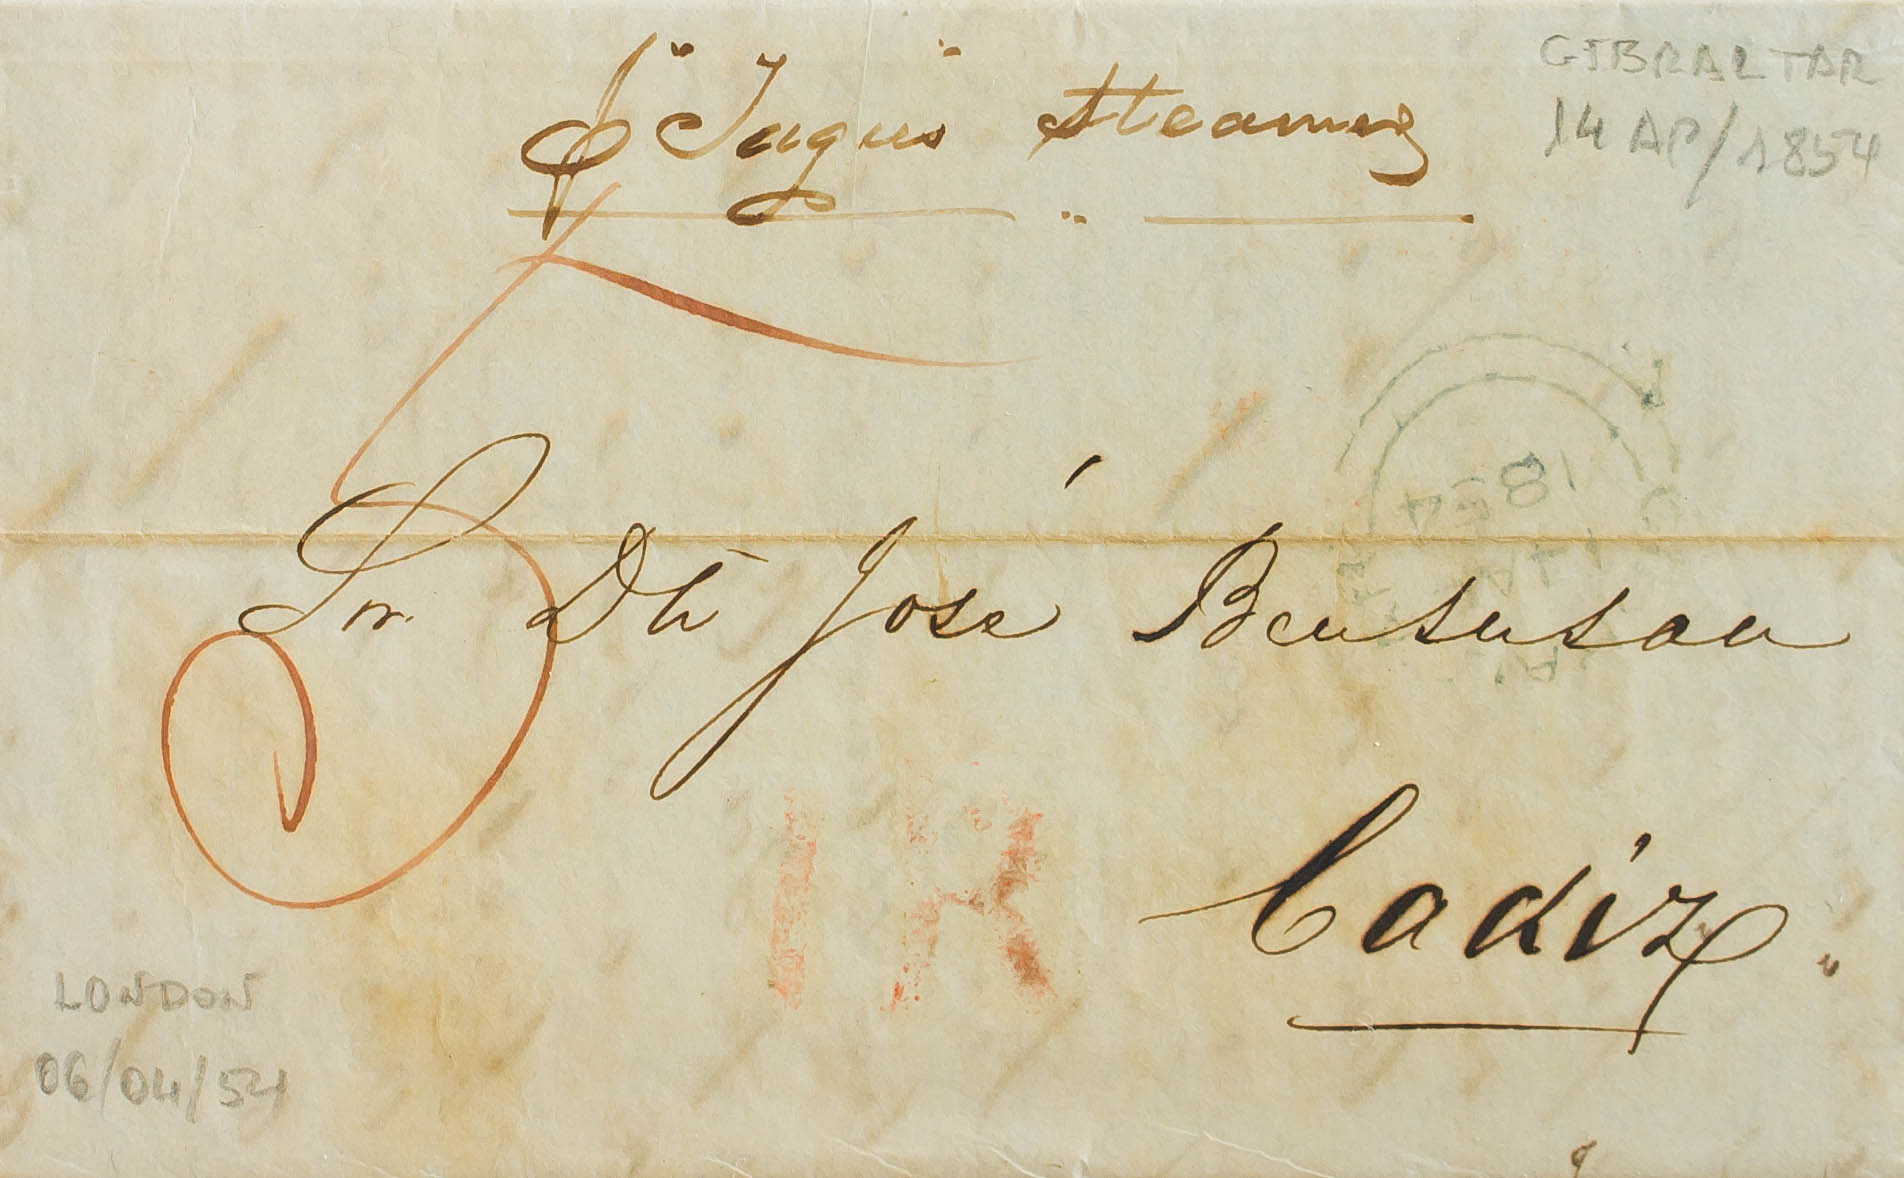 p "Tagus" Steamer
GIBRALTAR
14 AP/1854
1854
Sr. Dn José Bensusan
1R
Cadiz
LONDON
06/04/54